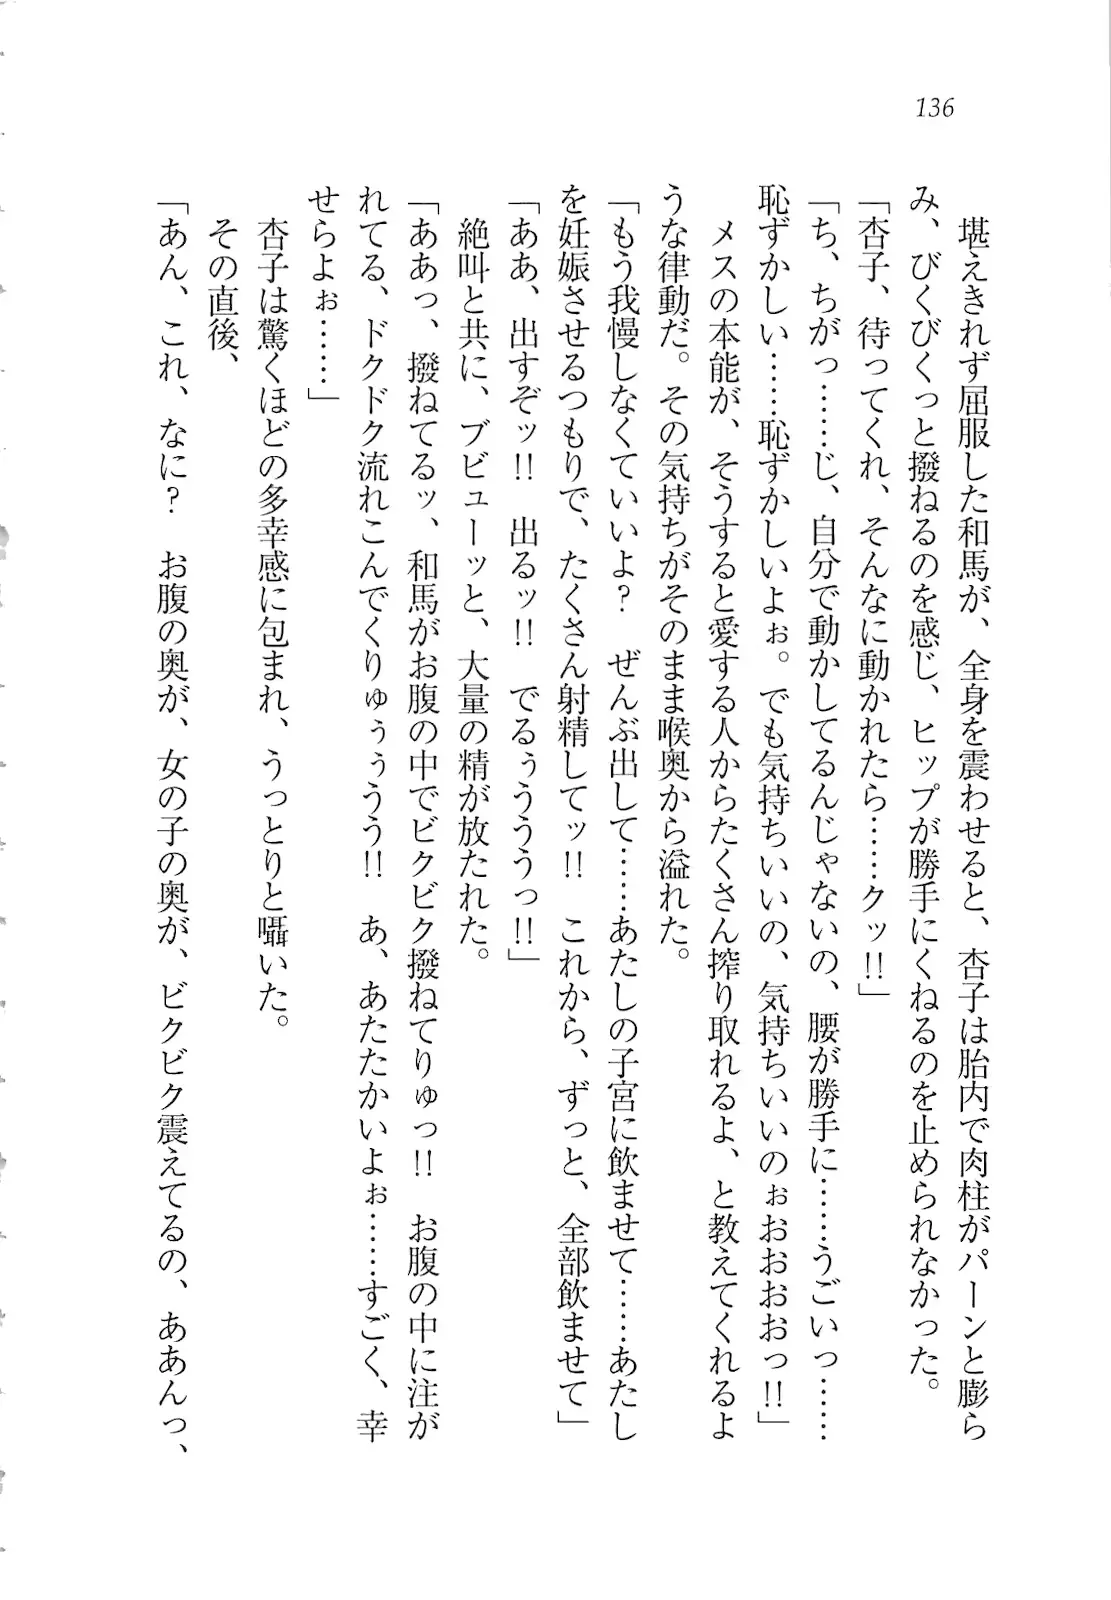 136
堪えきれず屈服した和馬が、全身を震わせると、杏子は胎内で肉柱がパーンと膨ら
み、びくびくっと撥ねるのを感じ、ヒップが勝手にくねるのを止められなかった。
「杏子、待ってくれ、そんなに動かれたら……クッ!!」
「ち、ちがっ……じ、自分で動かしてるんじゃないの、腰が勝手に……うごいっ……
恥ずかしい……恥ずかしいよぉ。でも気持ちいいの、気持ちいいのぉおおおおっ!!」
メスの本能が、そうすると愛する人からたくさん搾り取れるよ、と教えてくれるよ
うな律動だ。その気持ちがそのまま喉奥から溢れた。
「もう我慢しなくていいよ?　ぜんぶ出して……あたしの子宮に飲ませて……あたし
を妊娠させるつもりで、たくさん射精してッ!!　これから、ずっと、全部飲ませて」
「ああ、出すぞッ!!　出るッ!!　でるぅうううっ!!」
絶叫と共に、ブビューッと、大量の精が放たれた。
「ああっ、撥ねてるッ、和馬がお腹の中でビクビク撥ねてりゅっ!!　お腹の中に注が
れてる、ドクドク流れこんでくりゅぅぅうう!!　あ、あたたかいよぉ……すごく、幸
せらよぉ……」
杏子は驚くほどの多幸感に包まれ、うっとりと囁いた。
その直後、
「あん、これ、なに?　お腹の奥が、女の子の奥が、ビクビク震えてるの、ああんっ、